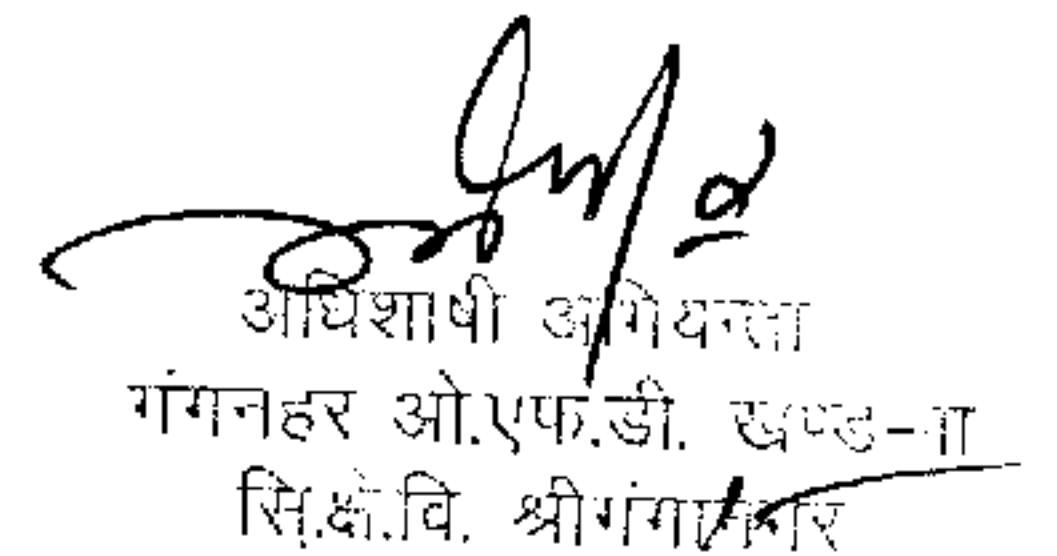 अधिशाषी अभियन्ता
गंगनहर ओ.एफ.डी. खण्ड-
सि.क्षे.वि. श्रीगंगानगर